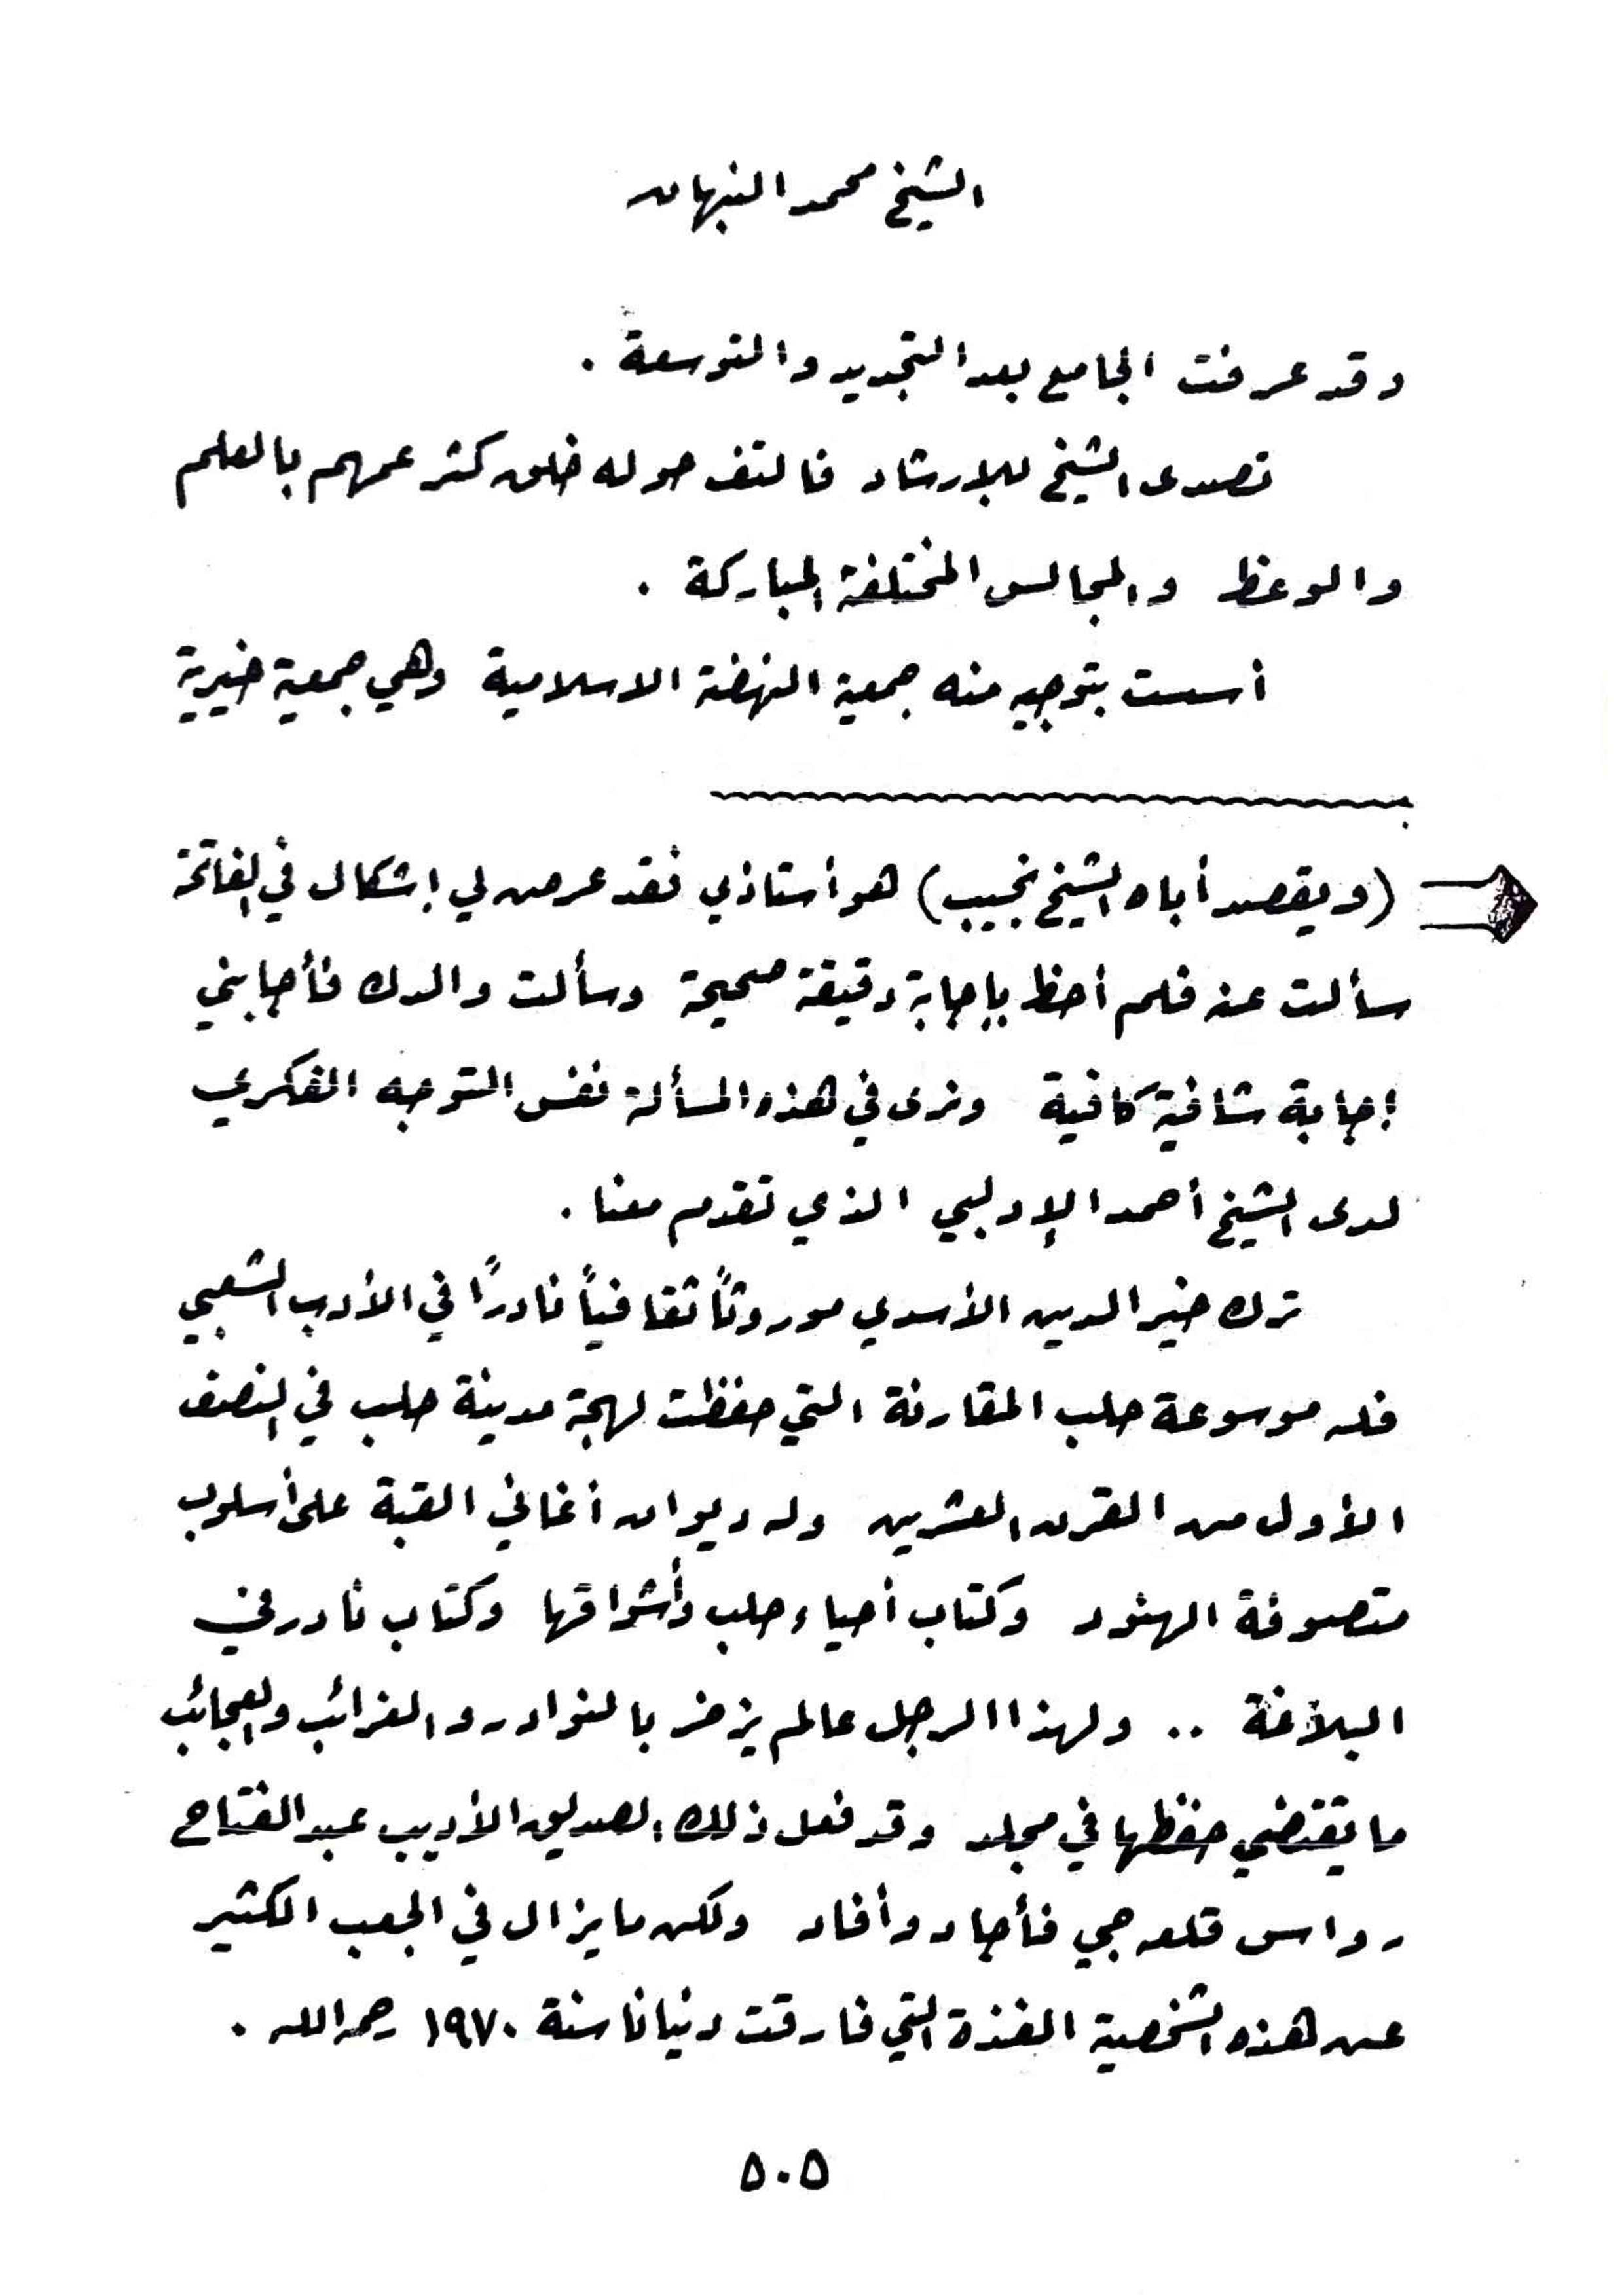 الشيخ محمد النبهان
وقد عرفت الجامع بعد التجديد والتوسعة .
تصدى الشيخ للإرشاد فالتف حوله خلق كثر عمهم بالعلم
والوعظ والمجالس المختلفة المباركة .
أسست بتوجيه منه جمعية النهضة الاسلامية وهي جمعية خيرية
(ويقصد أباه الشيخ نجيب) هو أستاذي فقد عرض لي إشكال في الفاتحة
سألت عنه فلم أحظ بإجابة دقيقة صحيحة وسألت والدك فأجابني
إجابة شافية كافية ونرى في هذه المسألة نفس التوجه الفكري
لدى الشيخ أحمد الإدلبي الذي تقدم معنا .
ترك خير الدين الأسدي موروثاً ثقافياً نادراً في الأدب الشعبي
فله موسوعة حلب المقارنة التي حفظت لهجة مدينة حلب في النصف
الأول من القرن العشرين وله ديوان أغاني القبة على أسلوب
متصوفة الهنود وكتاب أحياء حلب وأسواقها وكتاب نادر في
البلاغة .. ولهذا الرجل عالم يزخر بالنوادر والغرائب والعجائب
ما يقتضي حفظها في مجلد وقد فعل ذلك الصديق الأديب عبد الفتاح
رواس قلعه جي فأجاد وأفاد ولكن ما يزال في الجعب الكثير
عن هذه الشخصية الفذة التي فارقت دنيانا سنة ١٩٧٠ رحمه الله .
٥٠٥